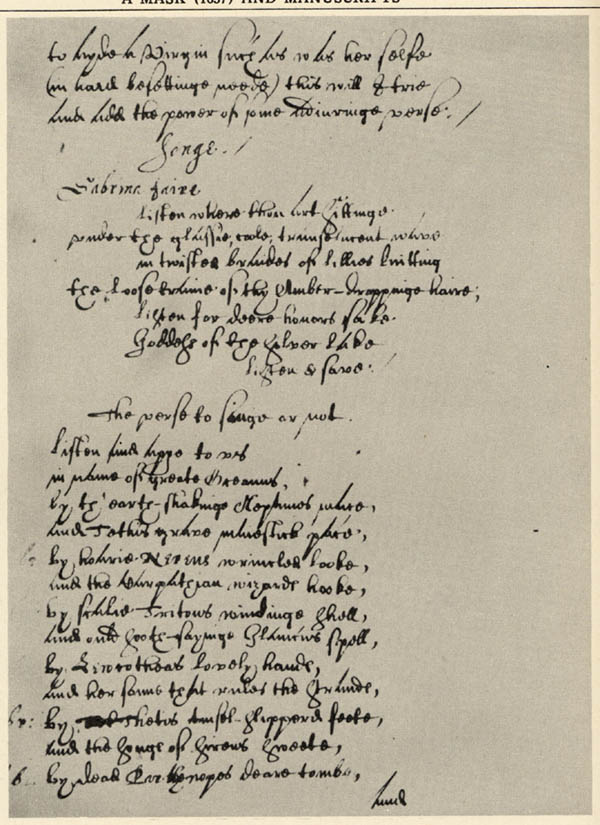 A MASK (1637) AND MANUSCRIPTS
to ayde a Virgin such as was her selfe
(in hard besettinge neede) this will I trie
and add the power of some adiuringe verse. /
Songe. /
Sabrina faire
Listen where thou art sittinge
vnder the glassie, coole, transelucent wave
in twisted braides of lillies knitting
the loose traine of thy Amber-droppinge haire;
Listen for deere honors sake
Goddess of the silver lake
Listen & save. /
The verse to singe or not.
Listen and appe to vs
in name of greate Oceanus,
by th' earth-shakinge Neptuns mace,
and Tethis grave maiestick pace,
by hoarie Nereus wrincled looke,
and the Carpathian wizards hooke,
by scalie Tritons windinge shell,
and ould sooth-sayinge Glaucus spell,
by Lewcotheas lovely hands,
and her sonne that rules the strands,
by Thetis tinsel-slipperd feete,
and the songe of sirens sweete,
by dead Parthenopes deare tombe,
and